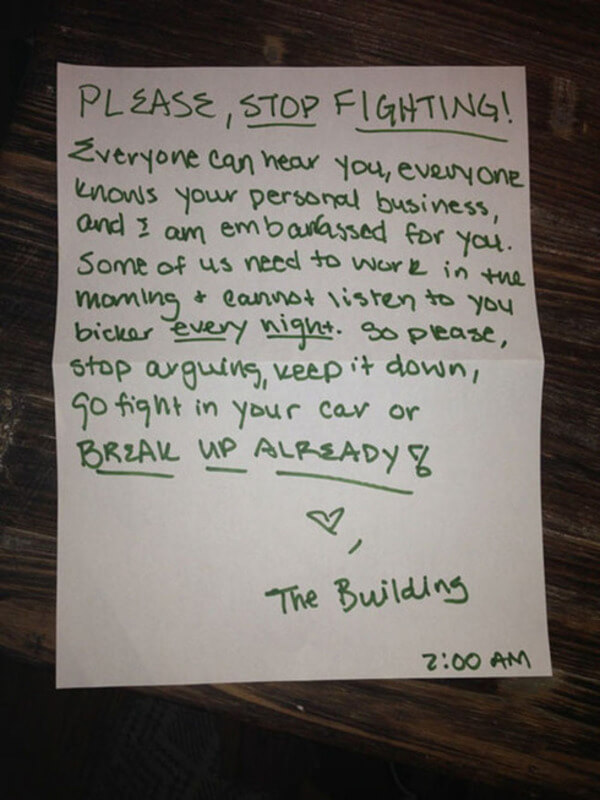 PLEASE, STOP FIGHTING!
Everyone can hear you, everyone
knows your personal business,
and I am embarassed for you.
Some of us need to work in the
morning + cannot listen to you
bicker every night. So please,
stop arguing, keep it down,
go fight in your car or
BREAK UP ALREADY!
♡,
The Building
2:00 AM